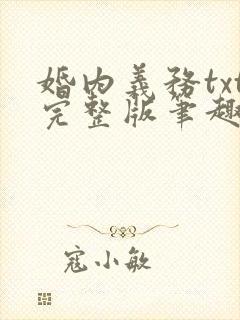 婚内義務txt
完整版筆趣
寇小敏